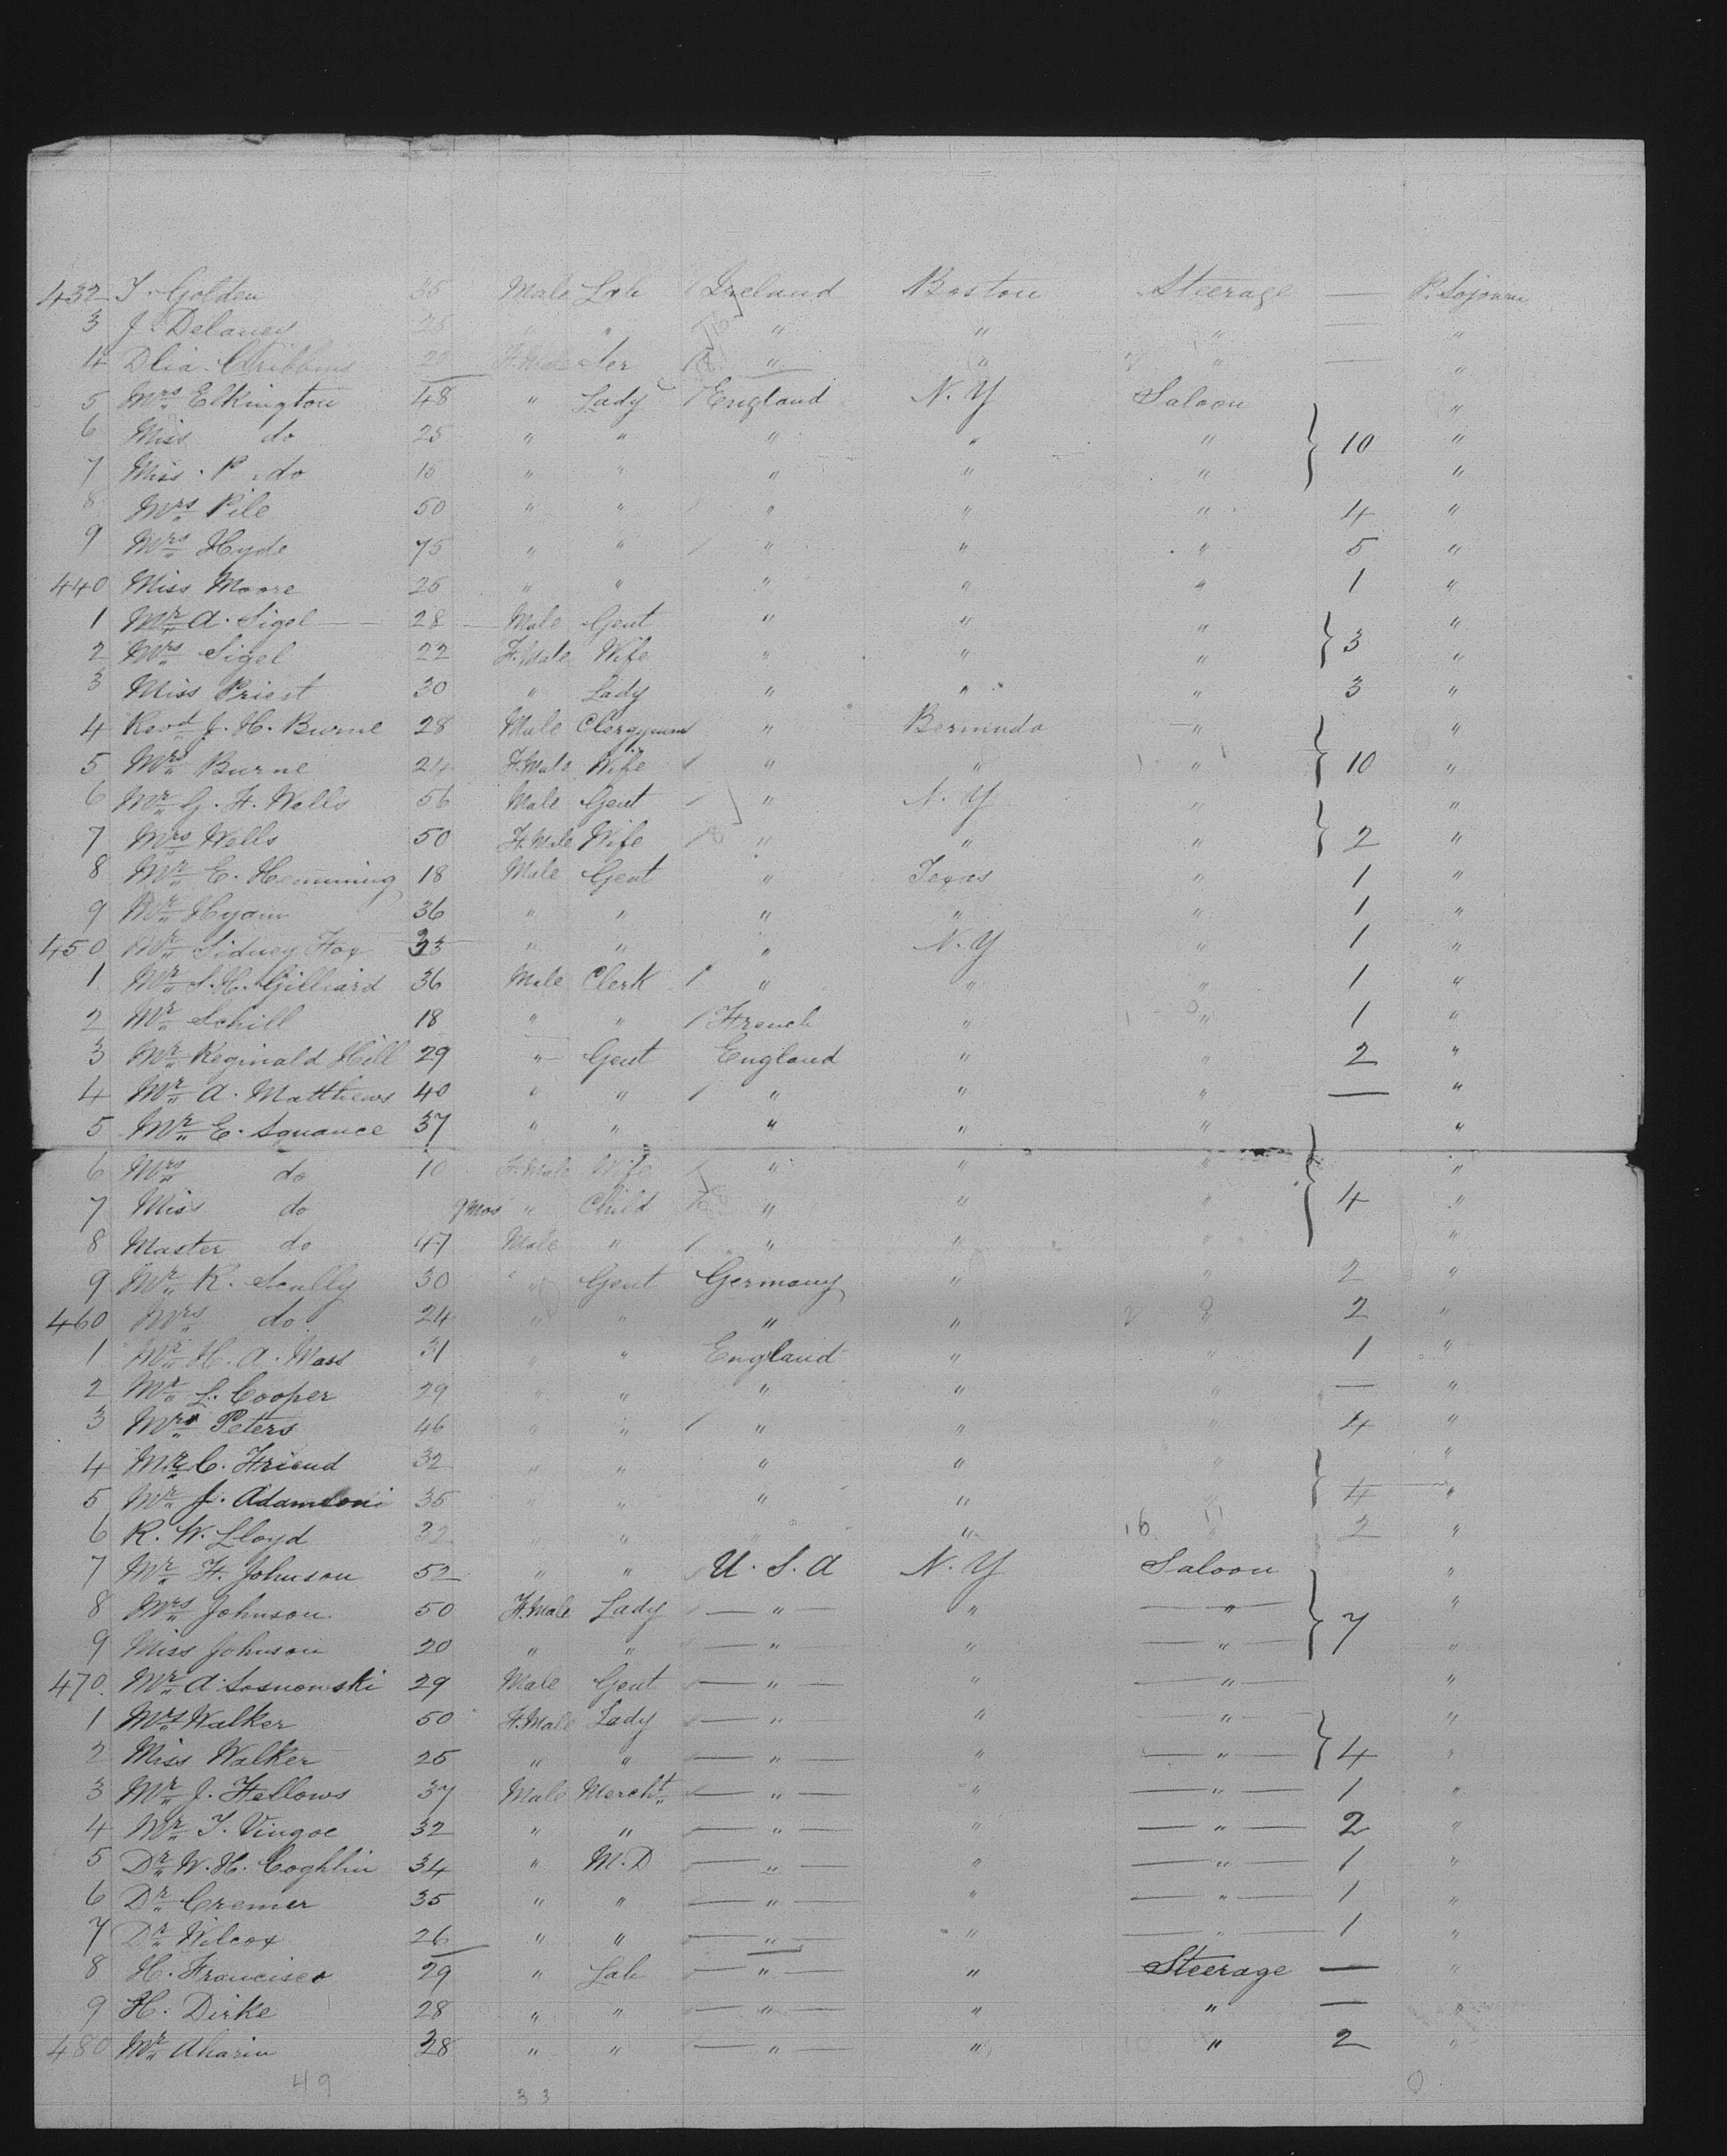 432 T. Golden 35 Male Lab Ireland Boston Steerage — P. Sojourn
3 J. Delaney 25 " " " " " — "
4 Dlia Cribbins 20 F.Male Ser " " " — "
5 Mrs Elkington 48 " Lady England N.Y Saloon "
6 Miss do 25 " " " " " 10 "
7 Miss P. do 15 " " " " " "
8 Mrs Pile 50 " " " " " 4 "
9 Mrs Hyde 75 " " " " " 5 "
440 Miss Moore 25 " " " " " 1 "
1 Mr A. Sigel 28 Male Gent " " " "
2 Mrs Sigel 22 F.Male Wife " " " 3 "
3 Miss Priest 30 " Lady " " " 3 "
4 Revd J. H. Burne 28 Male Clergyman " Bermuda " "
5 Mrs Burne 24 F.Male Wife " " " 10 "
6 Mr G. F. Wells 56 Male Gent " N.Y " "
7 Mrs Wells 50 F.Male Wife " " " 2 "
8 Mr E. Hemming 18 Male Gent " Texas " 1 "
9 Mr Hyam 36 " " " " " 1 "
450 Mr Sidney Fox 33 " " " N.Y " 1 "
1 Mr S. H. Gilliard 36 Male Clerk " " " 1 "
2 Mr Schill 18 " " French " " 1 "
3 Mr Reginald Hill 29 " Gent England " " 2 "
4 Mr A. Matthews 40 " " " " " — "
5 Mr E. Squance 37 " " " " " "
6 Mrs do 10 F.Male Wife " " " "
7 Miss do 9 Mos " Child " " " 4 "
8 Master do 47 Male " " " " "
9 Mr R. Scully 30 " Gent Germany " " 2 "
460 Mrs do 24 " " " " " 2 "
1 Mr H. A. Mass 31 " " England " " 1 "
2 Mr L. Cooper 29 " " " " " — "
3 Mrs Peters 46 " " " " " 4 "
4 Mr C. Friend 32 " " " " " "
5 Mr J. Adamson 35 " " " " " 4 "
6 R. W. Lloyd 32 " " " " 16 " 2 "
7 Mr F. Johnson 52 " " U.S.A N.Y Saloon "
8 Mrs Johnson 50 F.Male Lady — " — " — " — "
9 Miss Johnson 20 " " — " — " — " — 7 "
470 Mr A. Sosnowski 29 Male Gent — " — " — " — "
1 Mrs Walker 50 F.Male Lady — " — " — " — "
2 Miss Walker 25 " " — " — " — " — 4 "
3 Mr J. Fellows 37 Male Mercht — " — " — " — 1 "
4 Mr T. Vingoe 32 " " — " — " — " — 2 "
5 Dr W. H. Coghlin 34 " M.D — " — " — " — 1 "
6 Dr Cremer 35 " " — " — " — " — 1 "
7 Dr Wilcox 26 " " — " — " — " — 1 "
8 H. Francisco 29 " Lab — " — " Steerage — "
9 H. Dirke 28 " " — " — " " — "
480 Mr Aharin 28 " " — " — " " 2 "
49 33 0